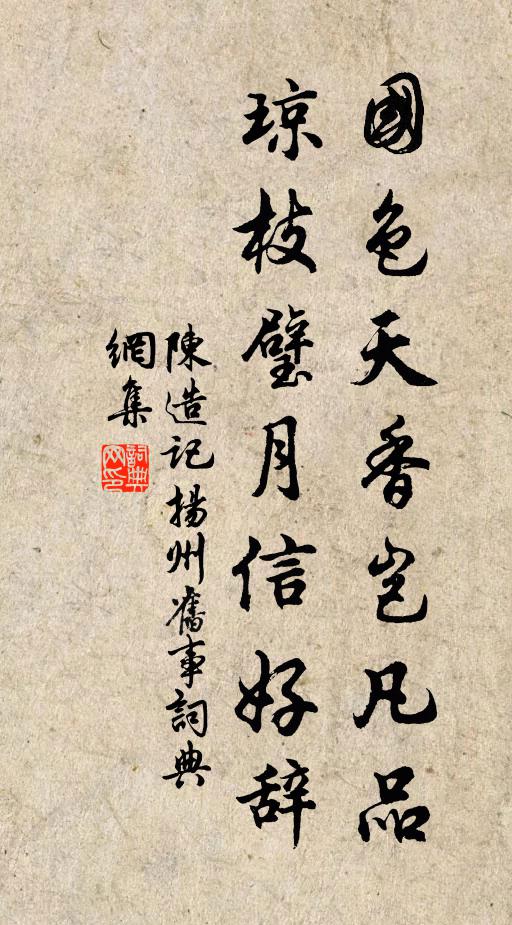 國色天香岂凡品
琼枝璧月信好辞
陳造記揚州舊事詞典
網集
詞典
网印